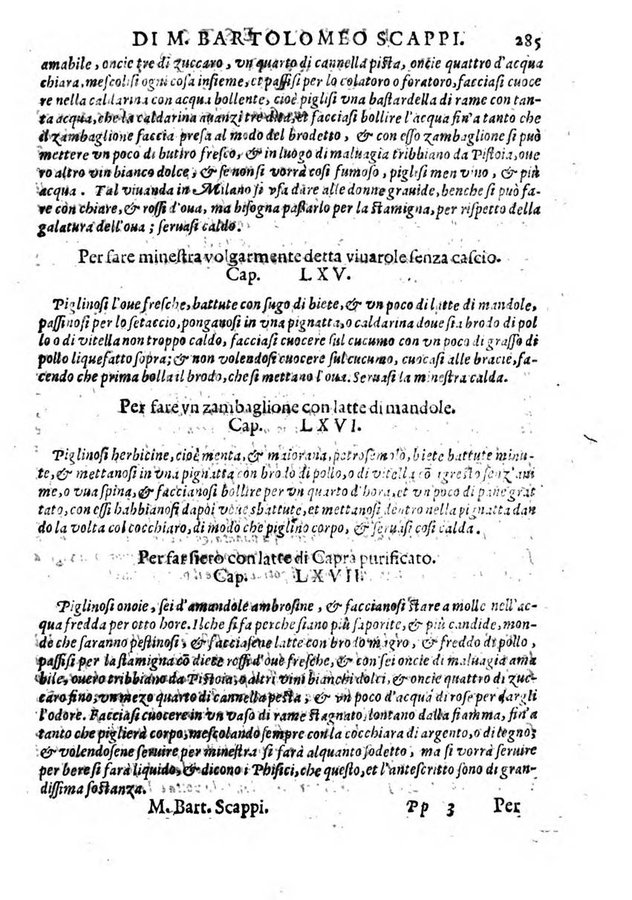 DI M. BARTOLOMEO SCAPPI. 285
amabile, oncie tre di zuccaro, vn quarto di cannella pista, oncie quattro d'acqua
chiara, mescolisi ogni cosa insieme, et passisi per lo colatoro o foratoro, facciasi cuoce
re nella caldarina con acqua bollente, cioè piglisi vna bastardella di rame con tan-
ta acqua, che la caldarina auanzi tre dita, et facciasi bollire l'acqua fin'a tanto che
il zambaglione faccia presa al modo del brodetto, & con esso zambaglione si può
mettere vn poco di butiro fresco, & in luogo di maluagia tribbiano da Pistoia, oue
ro altro vin bianco dolce, & se non si vorrà cosi fumoso, piglisi men vino, & più
acqua. Tal viuanda in Milano si vsa dare alle donne grauide, benche si può fa-
re con chiare, & rossi d'oua, ma bisogna passarlo per la stamigna, per rispetto della
galatura dell'oua; seruasi caldo.
Per fare minestra volgarmente detta viuarole senza cascio.
Cap. LXV.
Piglinosi l'oue fresche, battute con sugo di biete, & vn poco di latte di mandole,
passinosi per lo setaccio, ponganosi in vna pignatta, o caldarina doue sia brodo di pol
lo o di vitella non troppo caldo, facciasi cuocere sul cucumo con vn poco di grasso di
pollo liquefatto sopra; & non volendosi cuocere sul cucumo, cuocasi alle bracie, fa-
cendo che prima bolla il brodo, che si mettano l'oua. Seruasi la minestra calda.
Per fare vn zambaglione con latte di mandole.
Cap. LXVI.
Piglinosi herbicine, cioè menta, & maiorana, petrosemolo, biete battute minu-
te, & mettanosi in vna pignatta con brodo di pollo, o di vitella cō igresto senz'ani
me, o vua spina, & faccianosi bollire per vn quarto d'hora, et vn poco di pane grat
tato, con essi habbianosi dapoi voue sbattute, et mettanosi dentro nella pignatta dan
do la volta col cocchiaro, di modo che piglino corpo, & seruasi cosi calda.
Per far siero con latte di Capra purificato.
Cap. LXVII.
Piglinosi oncie, sei d'amandole ambrosine, & faccianosi stare a molle nell'ac-
qua fredda per otto hore. Il che si fa perche siano più saporite, & più candide, mon-
de che saranno pestinosi, & facciasene latte con brodo magro, & freddo di pollo,
passisi per la stamigna cō diete rossi d'oue fresche, & con sei oncie di maluagia ama
bile, ouero tribbiano da Pistoia, o altri vini bianchi dolci, & oncie quattro di zuc-
caro fino, vn mezo quarto di cannella pesta, & vn poco d'acqua di rose per dargli
l'odore. Facciasi cuocere in vn vaso di rame stagnato, lontano dalla fiamma, fin'a
tanto che piglierà corpo, mescolando sempre con la cocchiara di argento, o di legno;
& volendosene seruire per minestra si farà alquanto sodetto, ma si vorrà seruire
per bere si farà liquido, & dicono i Phisici, che questo, et l'antescritto sono di gran-
dissima sostanza.
M. Bart. Scappi. Pp 3 Per